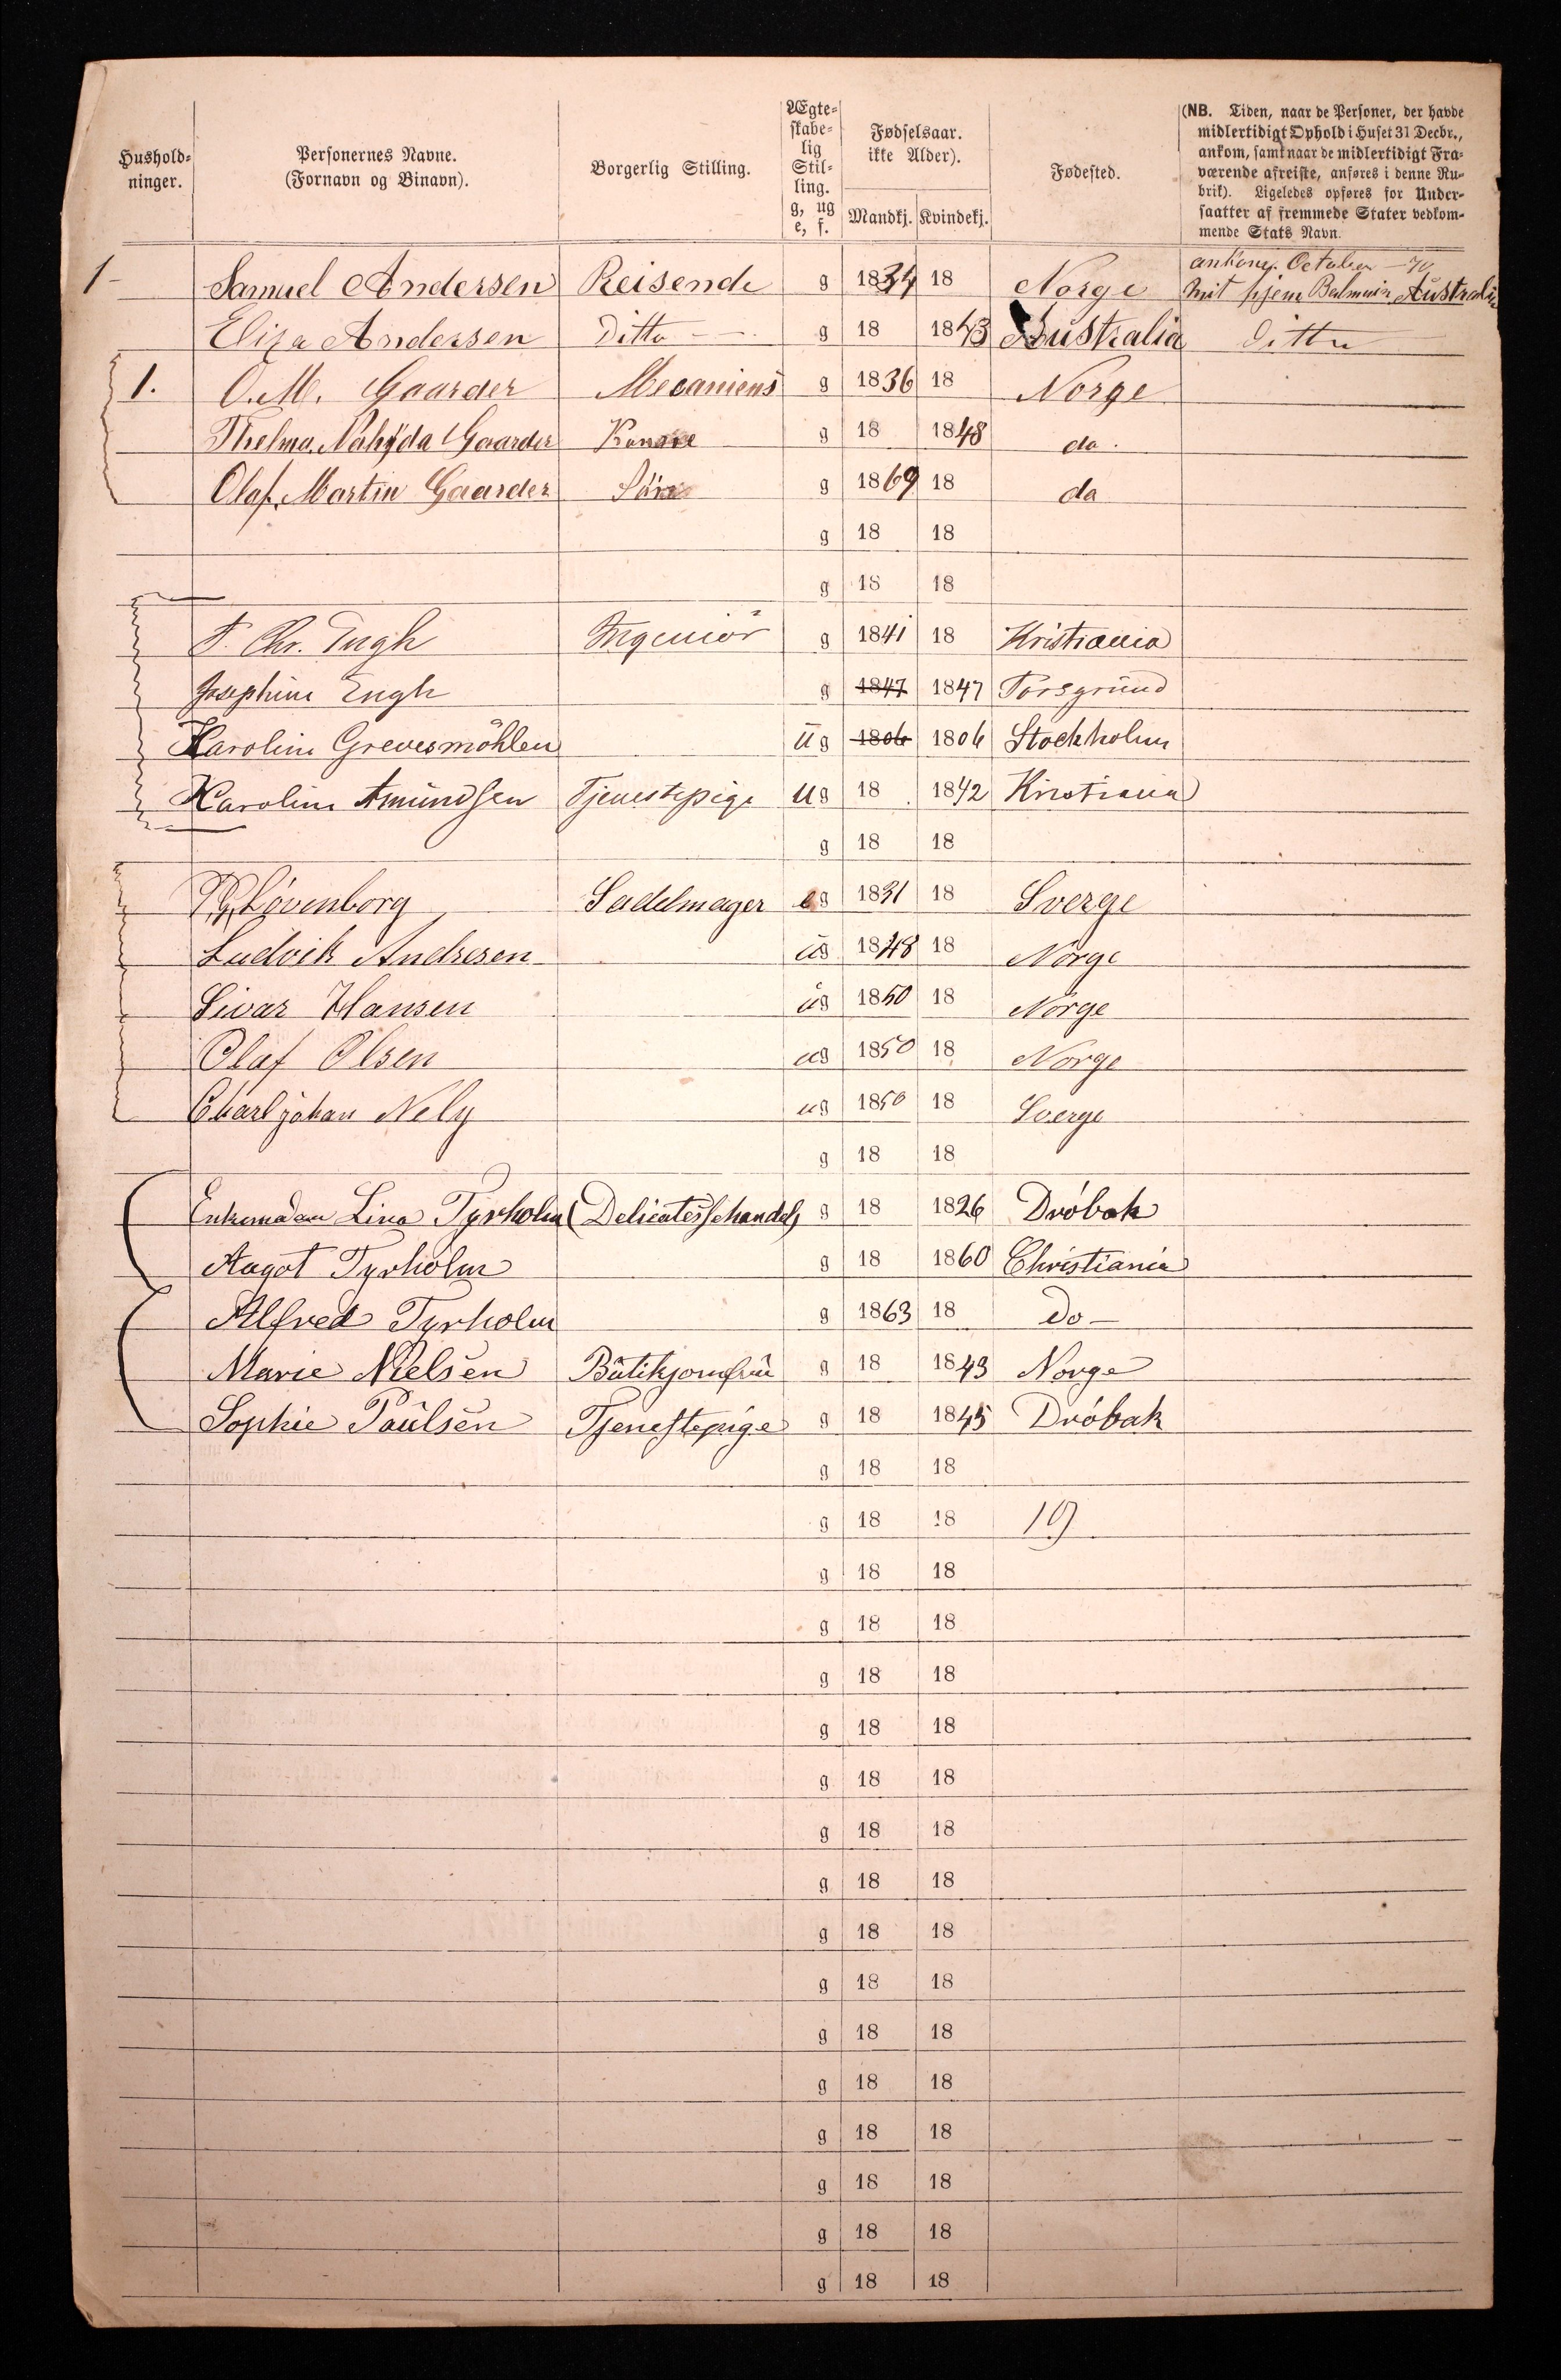 Hushold-
ninger.
Personernes Navne.
(Fornavn og Binavn).
Borgerlig Stilling.
Ægte-
skabe-
lig
Stil-
ling.
g, ug
e, f.
Fødselsaar.
ikke Alder).
Mandkj. Kvindekj.
Fødested.
(NB. Tiden, naar de Personer, der havde
midlertidigt Ophold i Huset 31 Decbr.,
ankom, samt naar de midlertidigt Fra-
værende afreiste, anføres i denne Ru-
brik). Ligeledes opføres for Under-
saatter af fremmede Stater vedkom-
mende Stats Navn.
October -70
1- Samuel Andersen Reisende g 1834 18 Norge mit hjem Australia
Eliza Andersen Ditto g 18 1843 Australia Ditto
1. O. M. Gaarder Mecanicus g 1836 18 Norge
Thelma Nahyda Gaarder Konane g 18 1848 do.
Olaf Martin Gaarder Sön g 1869 18 do
g 18 18
g 18 18
Chr. Engh Ingeniör g 1841 18 Kristiania
Josephine Engh g 1847 1847 Porsgrund
Karoline Grevesmöhlen ug 1806 1806 Stockholm
Karoline Amundsen Tjenestepige ug 18 1842 Kristiania
g 18 18
Lövenborg Sadelmager eg 1831 18 Sverge
Ludvik Andresen ug 1848 18 Norge
Sivar Hansen ug 1850 18 Norge
Olaf Olsen ug 1850 18 Norge
Charl johan Nely ug 1850 18 Sverge
g 18 18
Enkemadam Lina Tyrholm (Delicatesschandel) g 18 1826 Dröbak
Aagot Tyrholm g 18 1860 Christiania
Alfred Tyrholm g 1863 18 Do-
Marie Nielsen Butikjomfru g 18 1843 Norge
Sophie Paulsen Tjenestepige g 18 1845 Dröbak
g 18 18
g 18 18 19
g 18 18
g 18 18
g 18 18
g 18 18
g 18 18
g 18 18
g 18 18
g 18 18
g 18 18
g 18 18
g 18 18
g 18 18
g 18 18
g 18 18
g 18 18